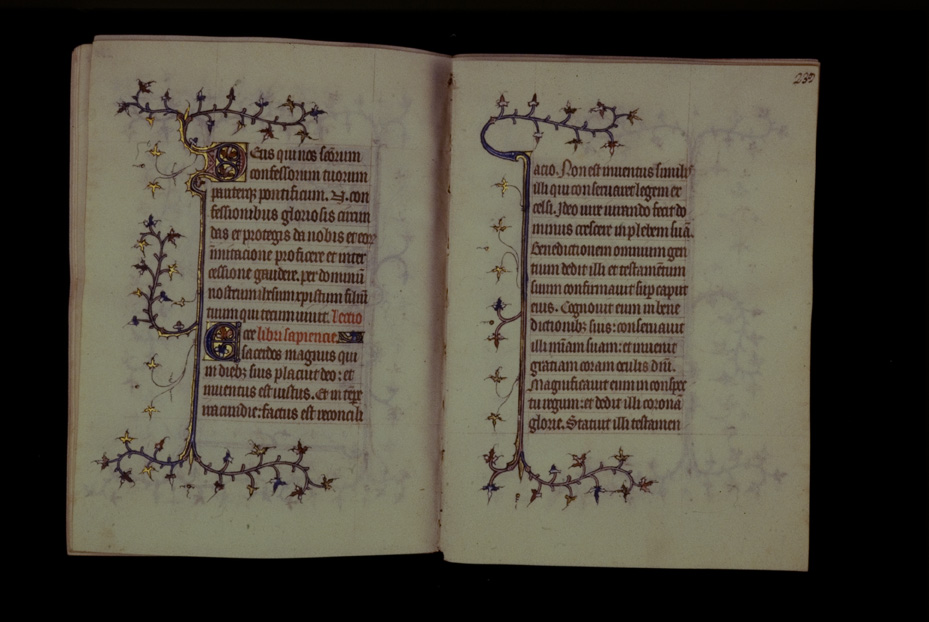 Deus qui nos scōrum
confessorum tuorum
panterqꝫ pontificum. N. con
fessionibus gloriosis circun
das et protegis da nobis et eoꝝ
īmitacione proficere et inter
cessione gaudere. per dominū
nostrum ihesum xpistum filiū
tuum qui tecum uiuit. Lectio
Ecce libri sapiencie.
sacerdos magnus qui
in diebꝫ suis placuit deo: et
inuentus est iustus. Et in tꝑe
iracundie: factus est reconcili
230
acio. Non est inuentus similis
illi qui conseruaret legem ex
celsi. Ideo iure iurando fecit do
minus crescere in plebem suā.
Benedictionem omnium gen
tium dedit illi et testamētum
suum confirmauit suꝑ caput
eius. Cognouit eum in bene
dictionibꝫ suis: conseruauit
illi mīam suam: et inuenit
gratiam coram oculis dn̄i.
Magnificauit eum in conspec
tu regum: et dedit illi coronā
glorie. Statuit illi testamen